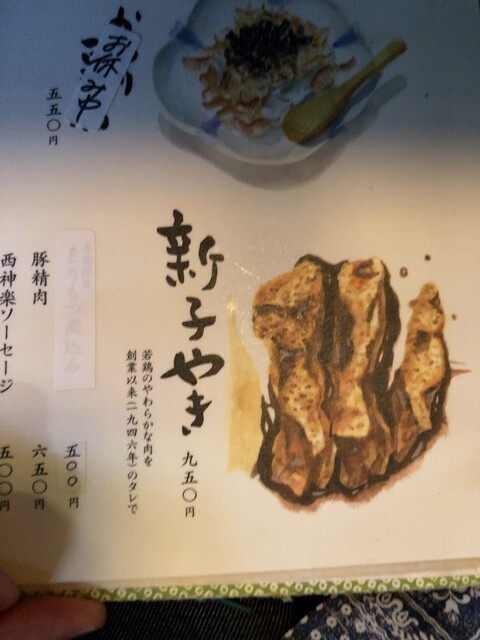 お休み中
五五〇円
新子やき
九五〇円
若鶏のやわらかな肉を
創業以来(一九四六年)のタレで
もつ煮込み
五〇〇円
豚精肉
六五〇円
西神楽ソーセージ
五〇〇円